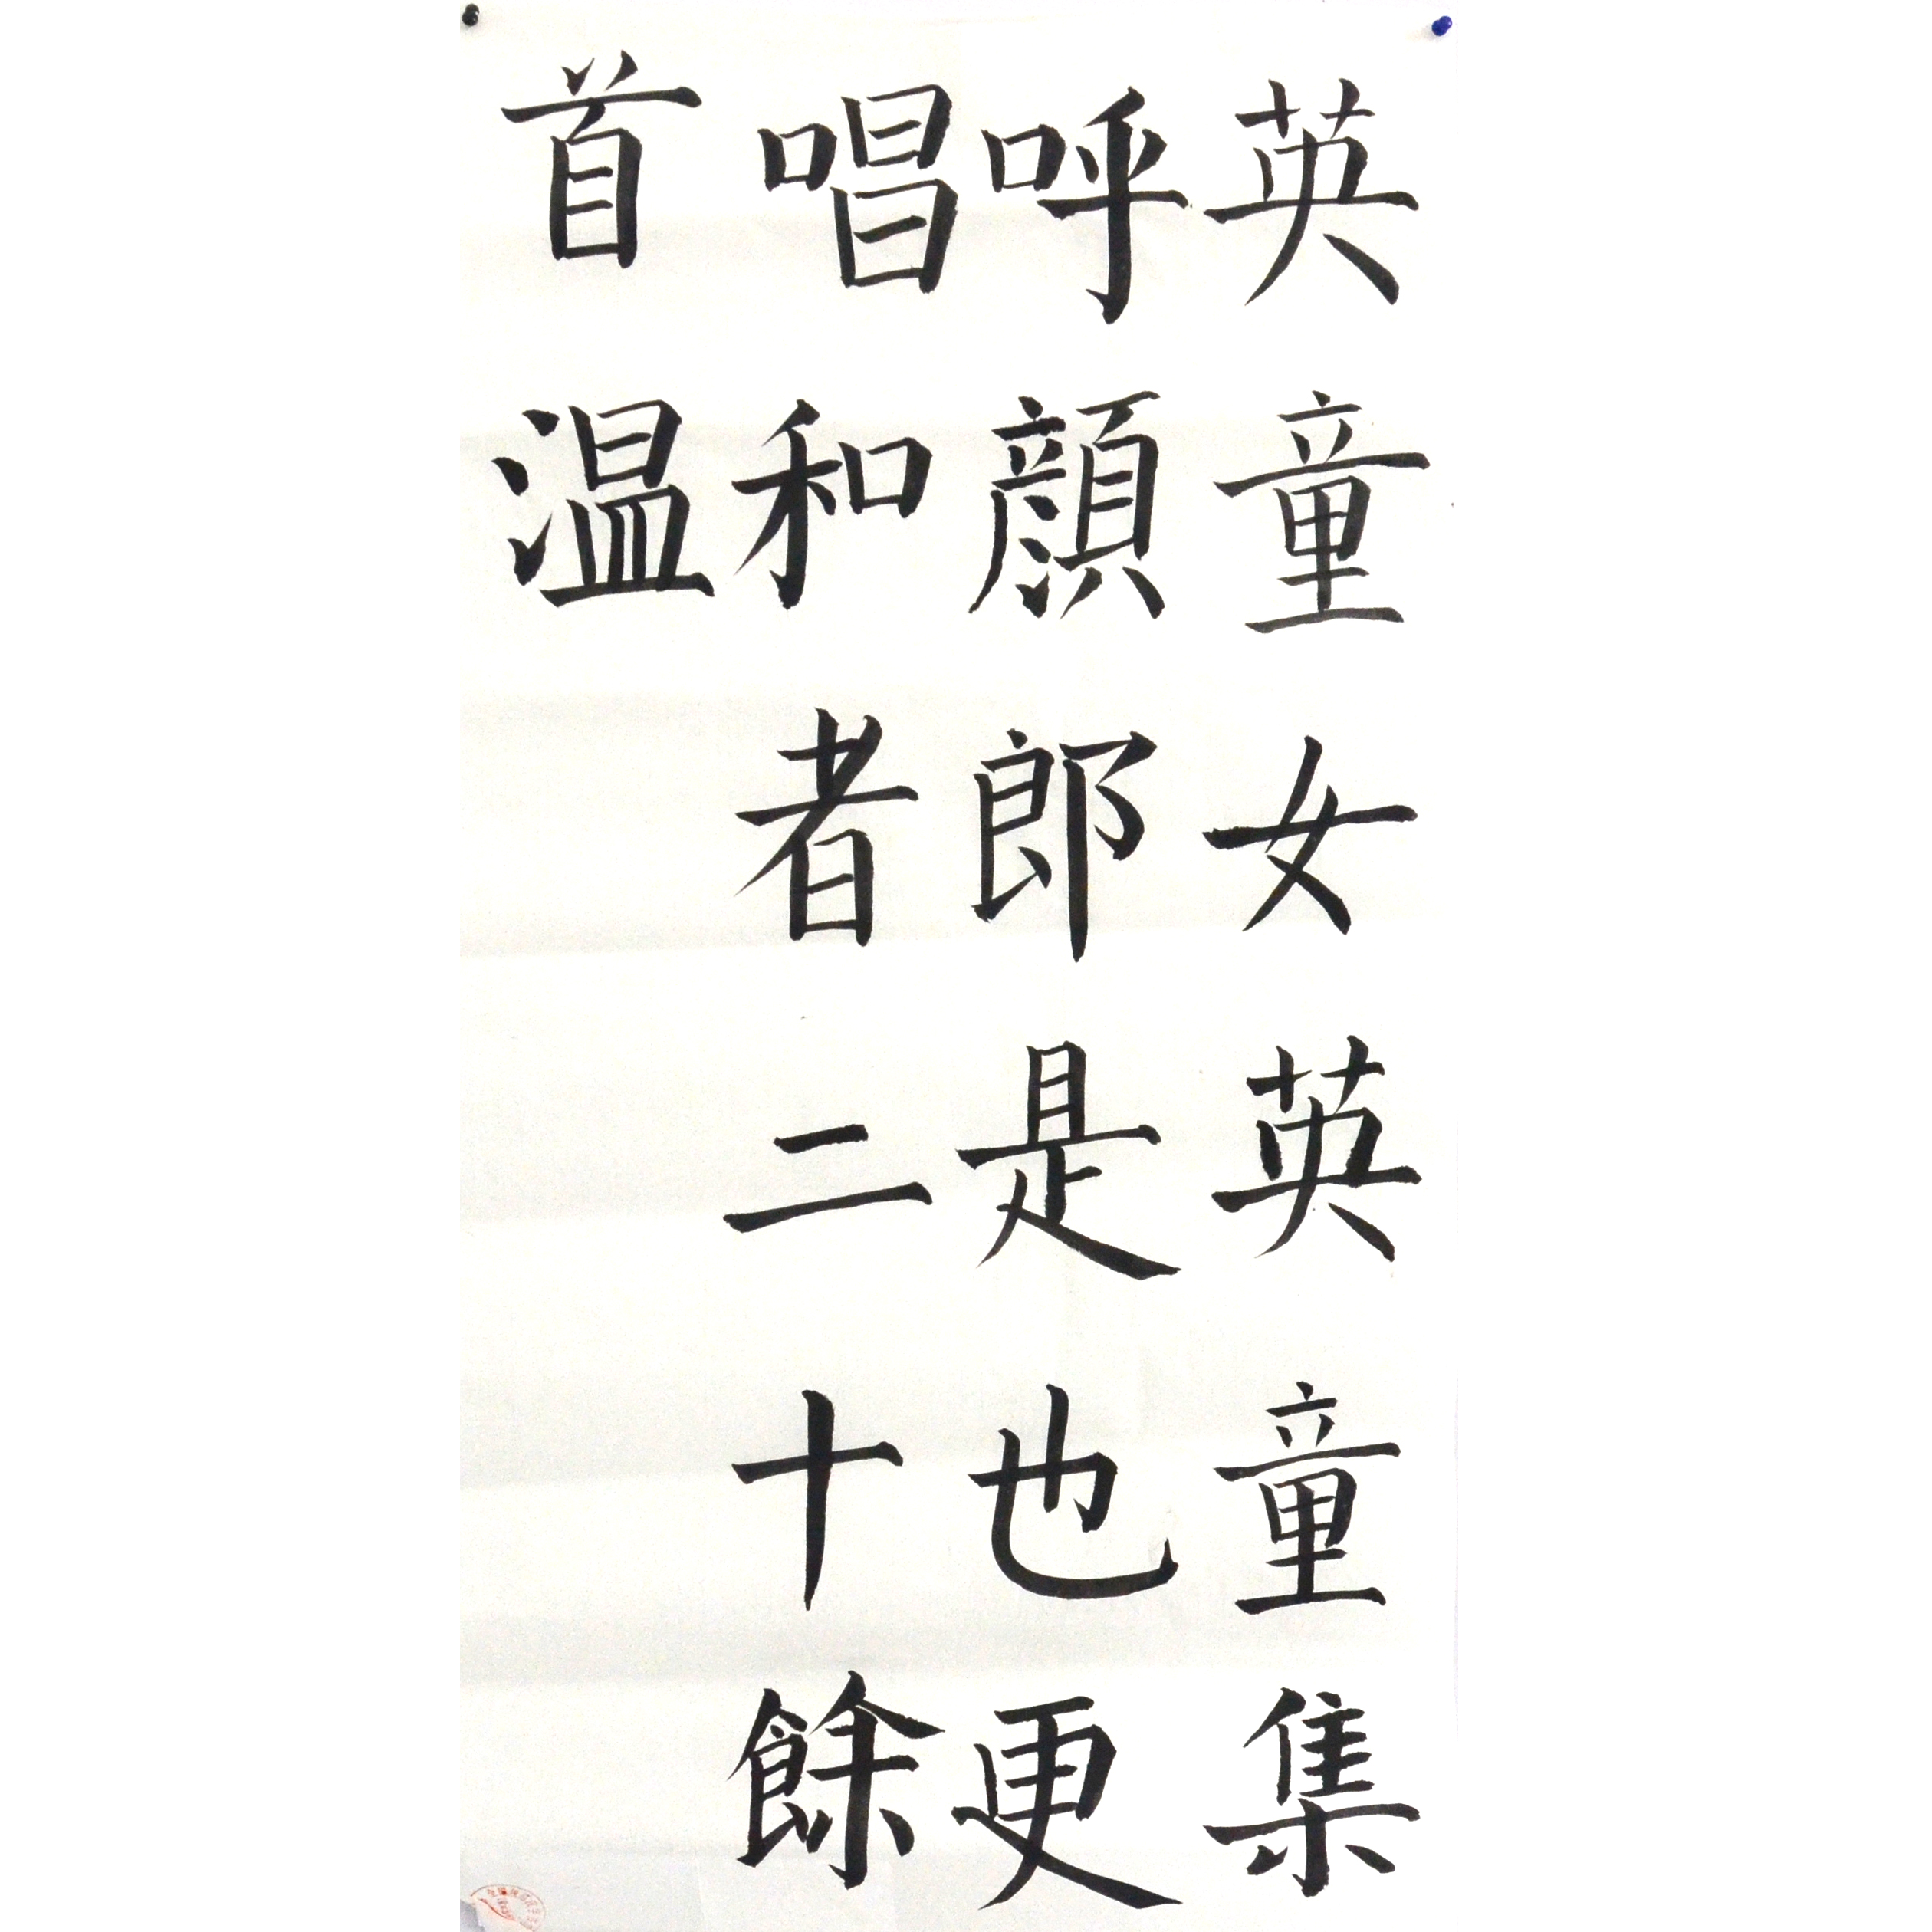 英童女英童集
呼顔郎是也更
唱和者二十餘
首温